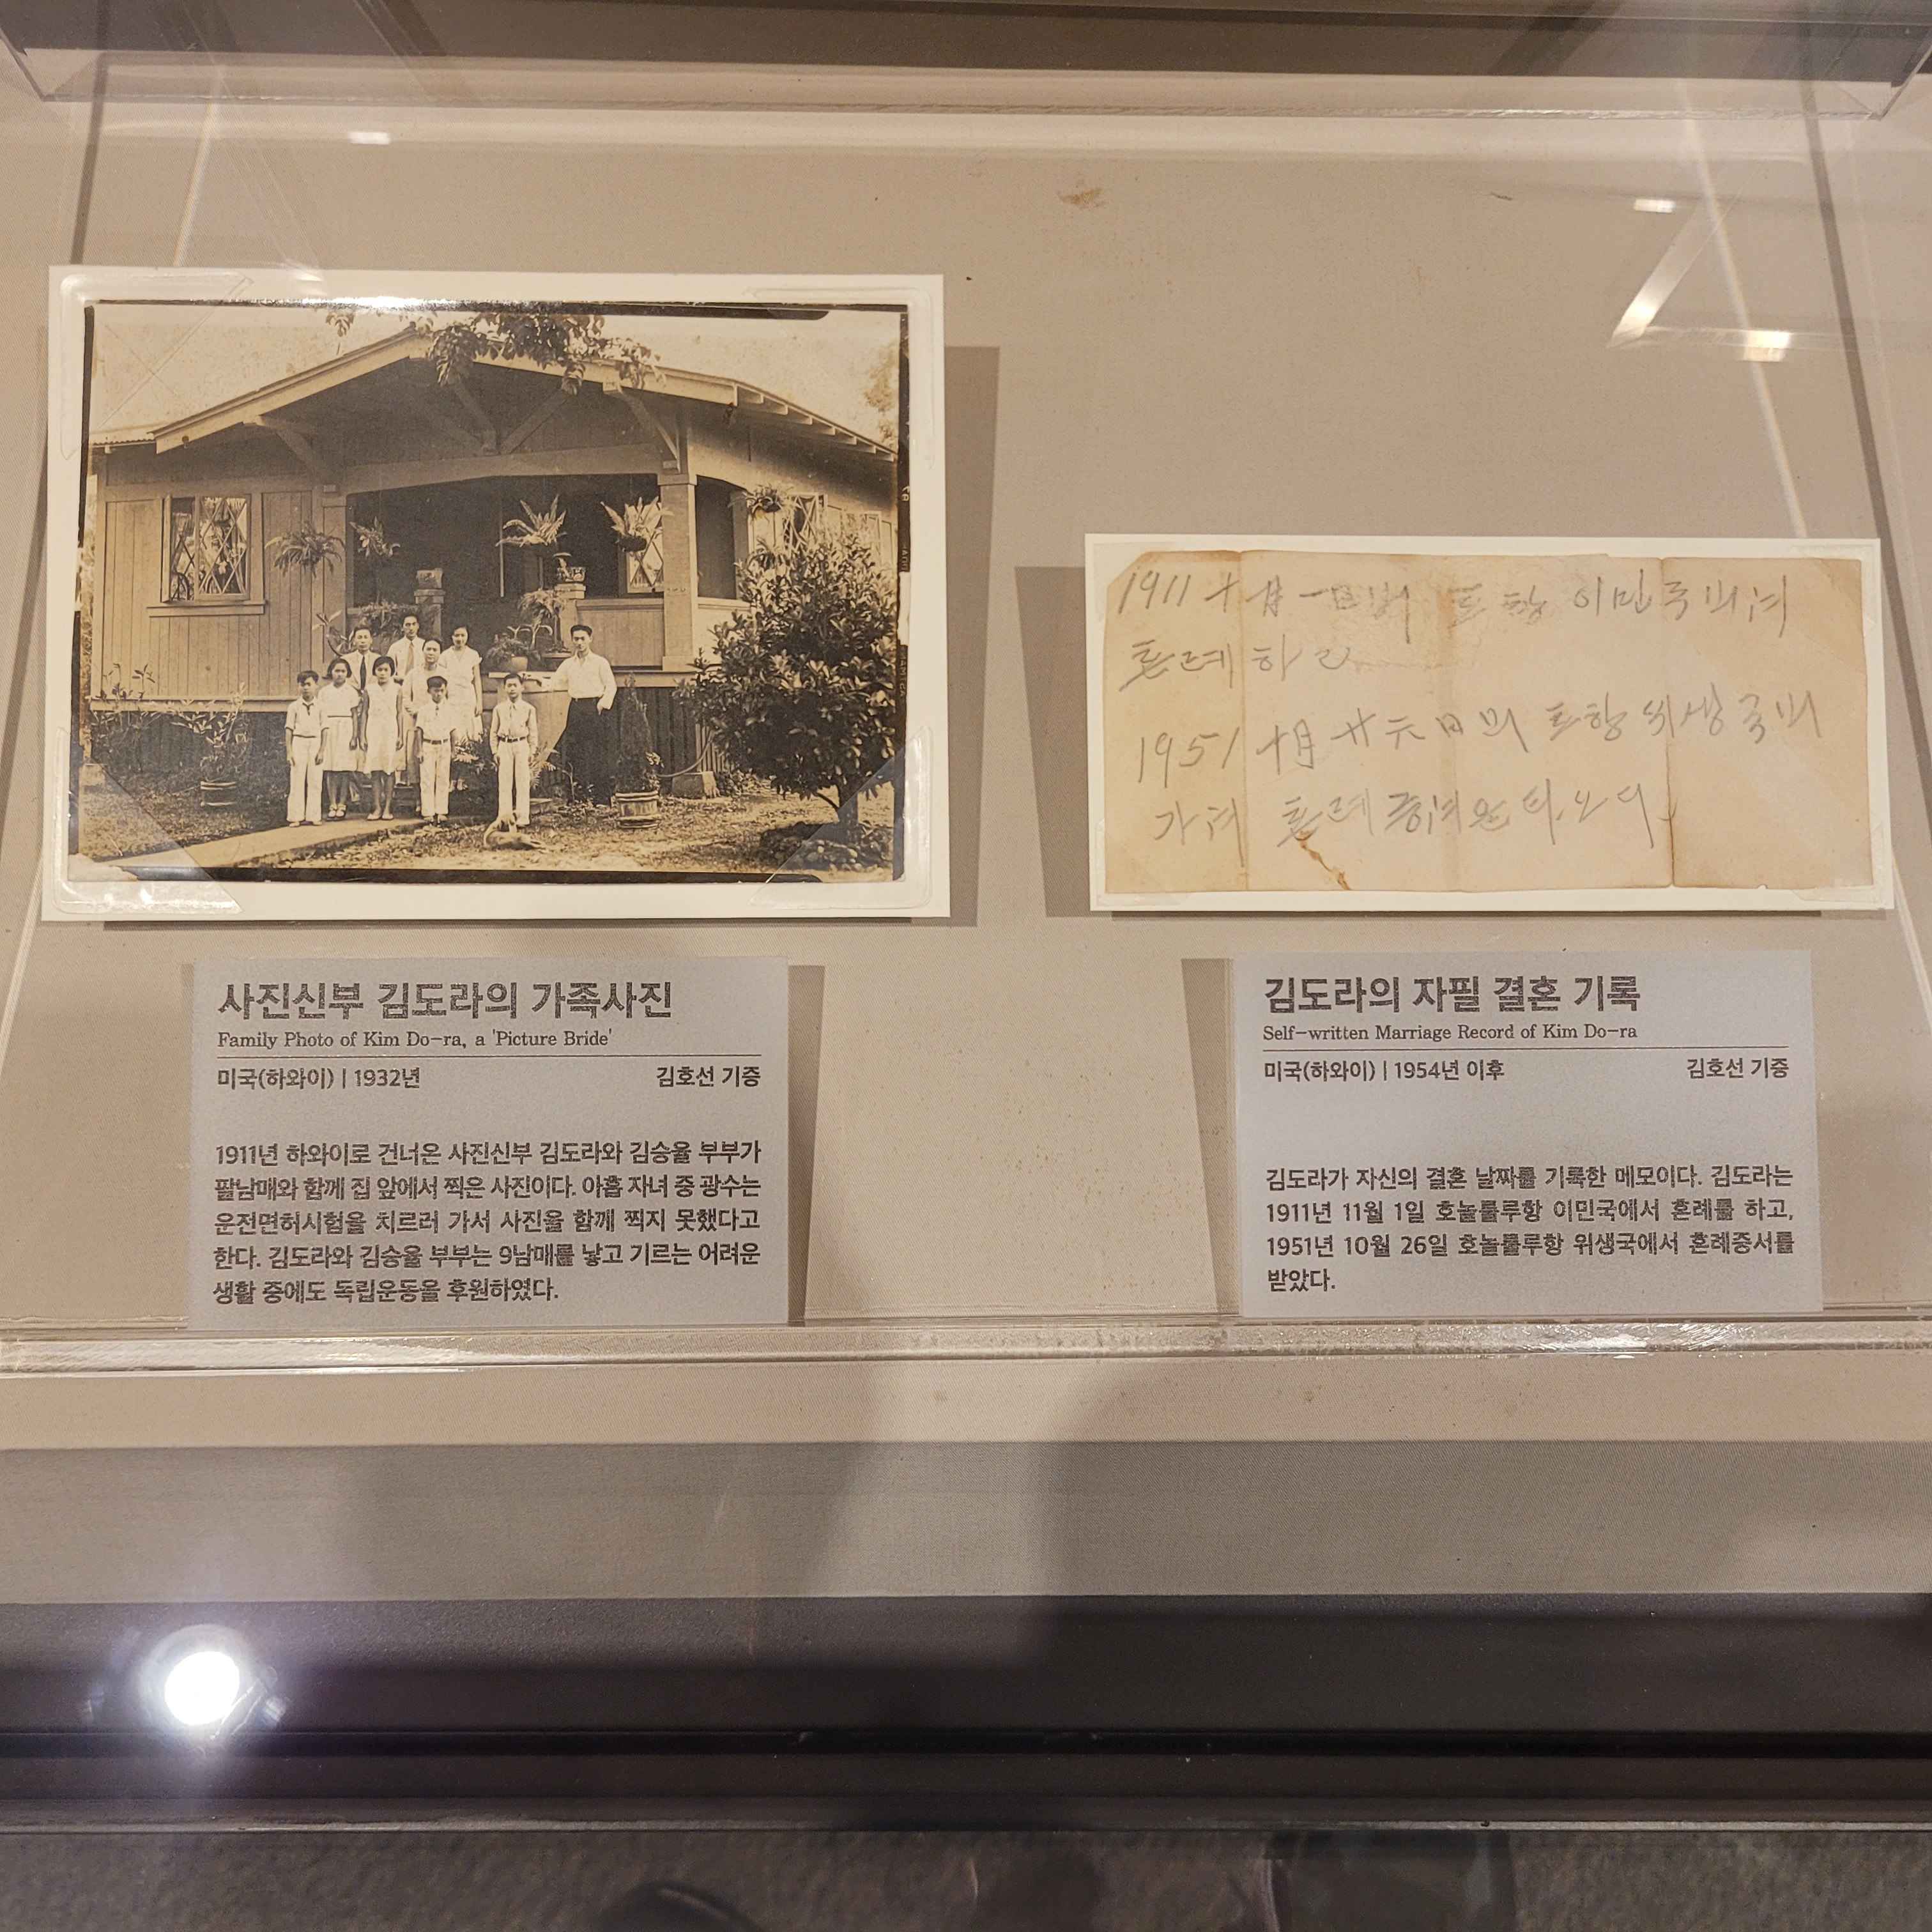 1911 十月一日
이민국
혼례 하고
1951 十月 廿六日 위생국
혼례
사진신부 김도라의 가족사진
Family Photo of Kim Do-ra, a 'Picture Bride'
미국(하와이) | 1932년 김호선 기증
1911년 하와이로 건너온 사진신부 김도라와 김승율 부부가
팔남매와 함께 집 앞에서 찍은 사진이다. 아홉 자녀 중 광수는
운전면허시험을 치르러 가서 사진을 함께 찍지 못했다고
한다. 김도라와 김승율 부부는 9남매를 낳고 기르는 어려운
생활 중에도 독립운동을 후원하였다.
김도라의 자필 결혼 기록
Self-written Marriage Record of Kim Do-ra
미국(하와이) | 1954년 이후 김호선 기증
김도라가 자신의 결혼 날짜를 기록한 메모이다. 김도라는
1911년 11월 1일 호놀룰루항 이민국에서 혼례를 하고,
1951년 10월 26일 호놀룰루항 위생국에서 혼례증서를
받았다.